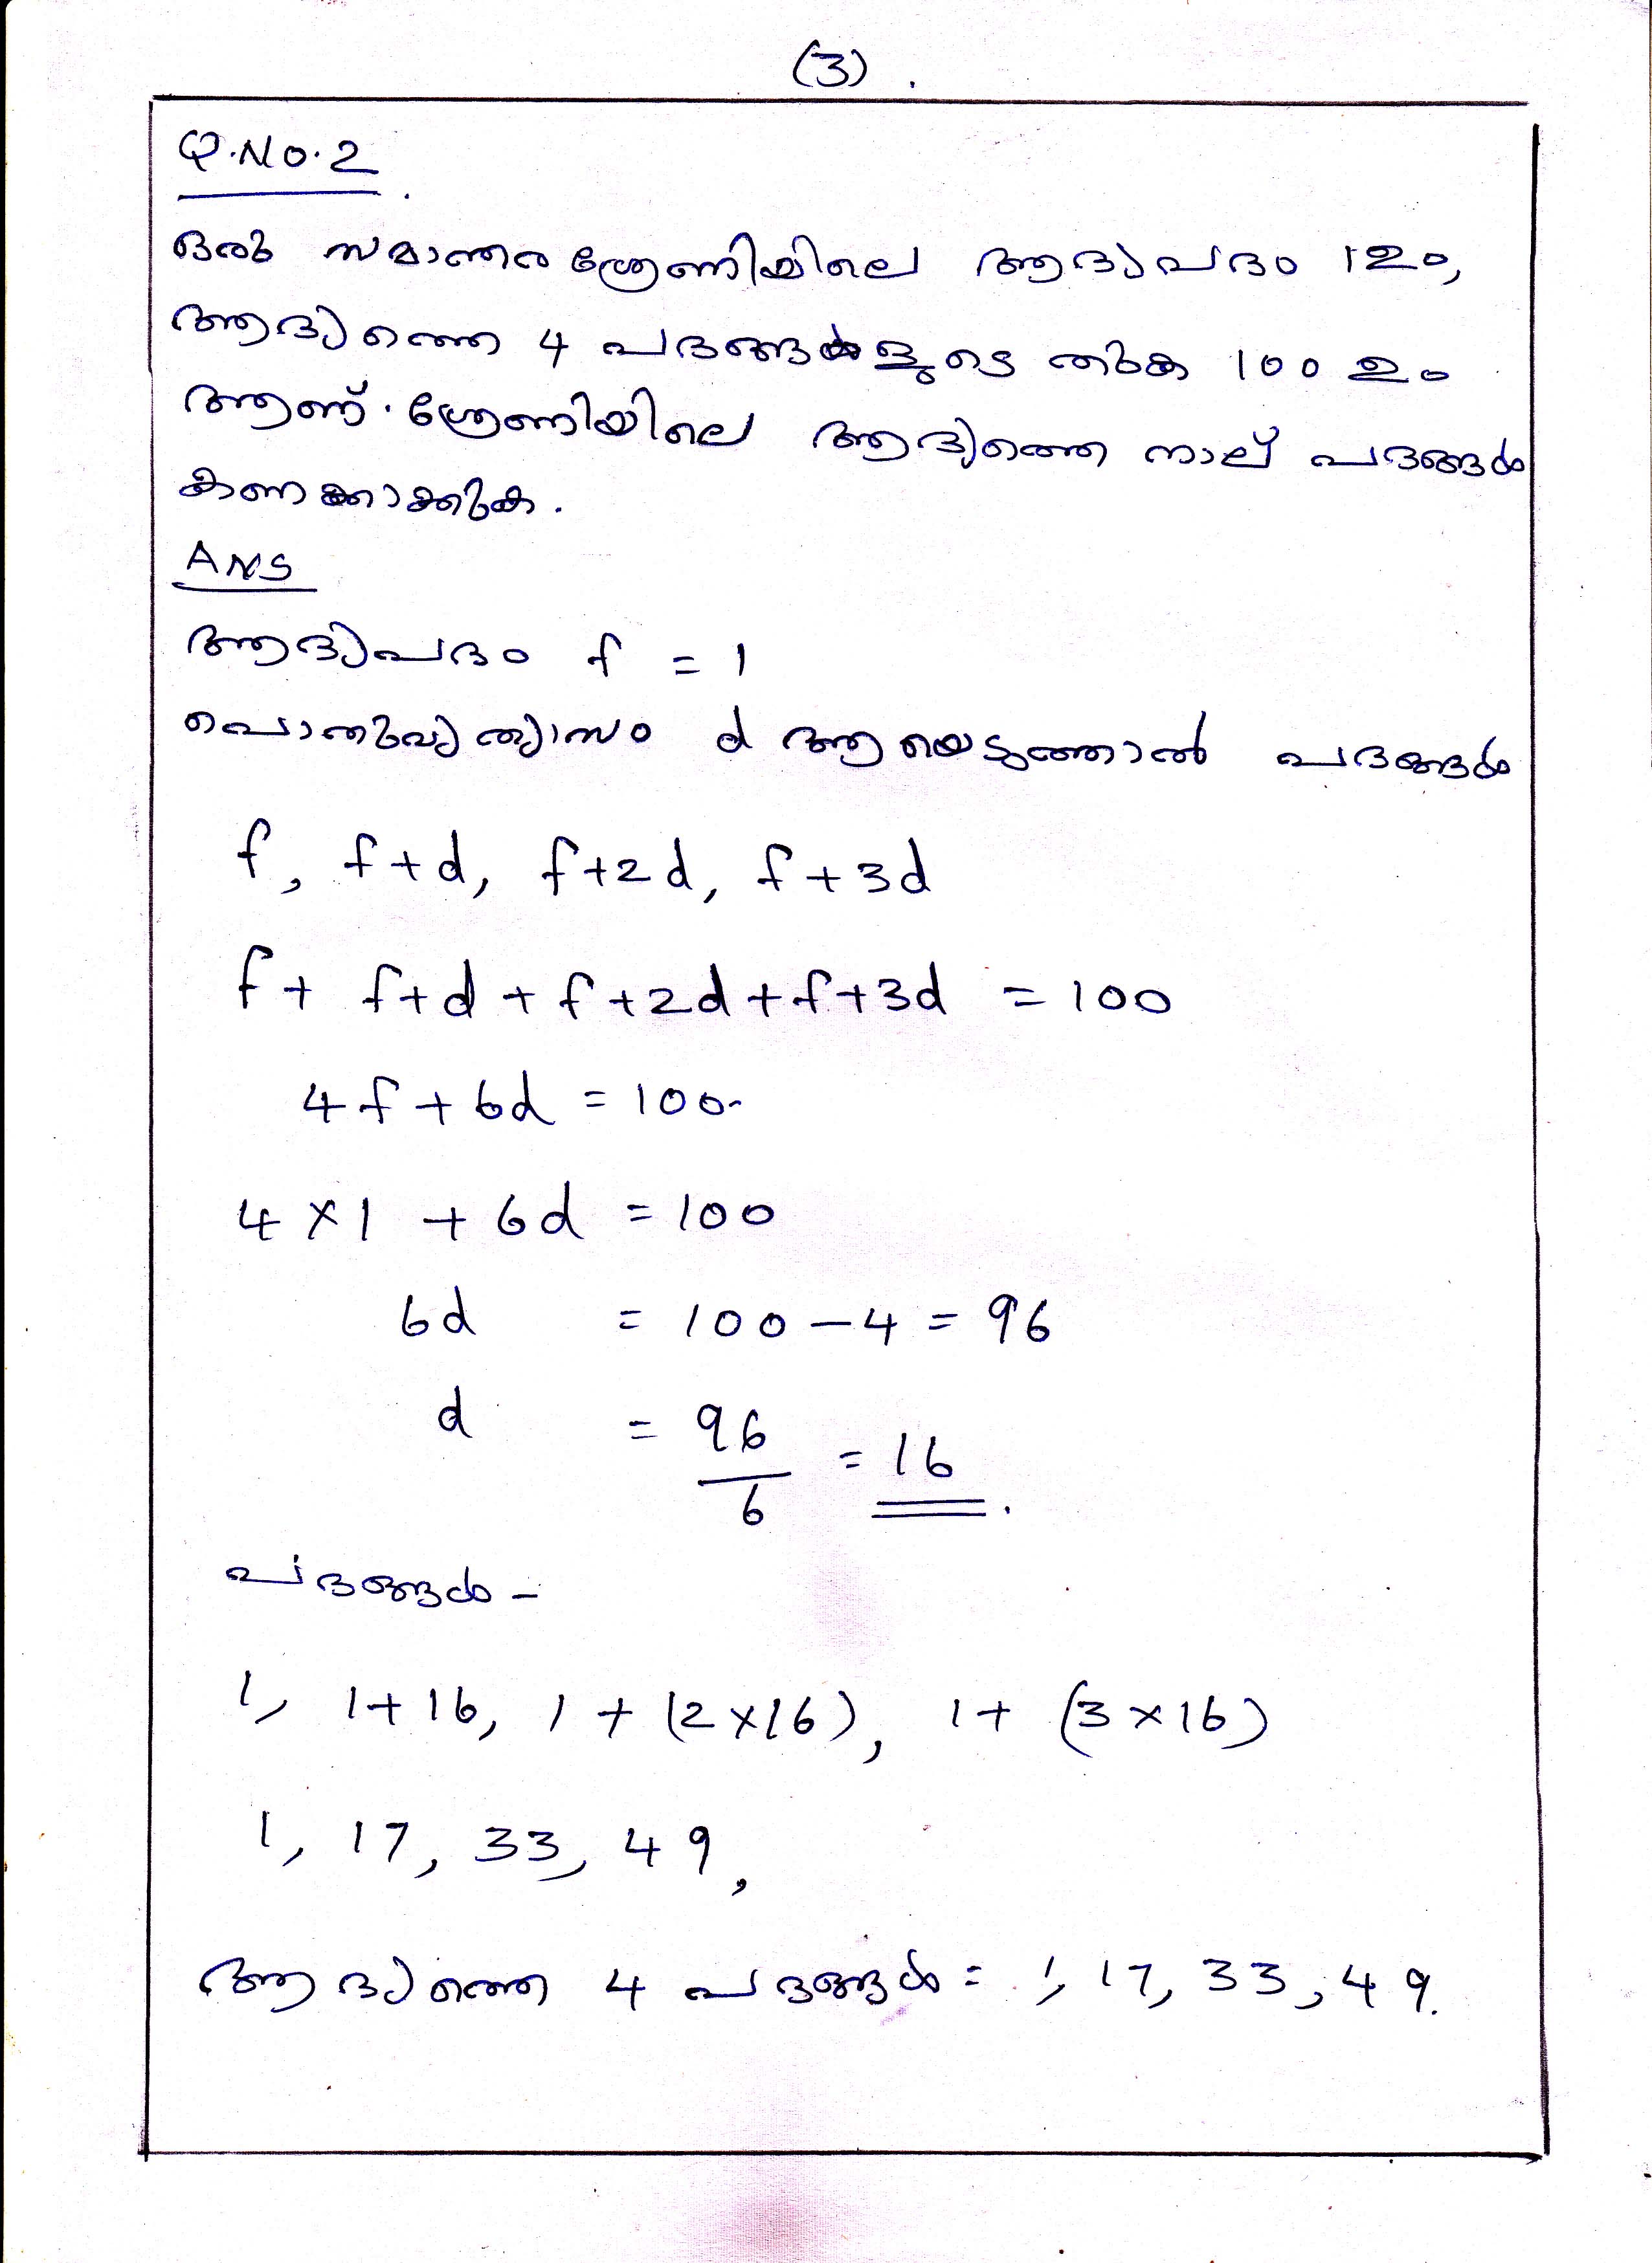 (3).
Q.No.2
ഒരു സമാന്തരശ്രേണിയിലെ ആദ്യപദം 1ഉം,
ആദ്യത്തെ 4 പദങ്ങളുടെ തുക 100 ഉം
ആണ്. ശ്രേണിയിലെ ആദ്യത്തെ നാല് പദങ്ങൾ
കണക്കാക്കുക.
ANS
ആദ്യപദം f = 1
പൊതുവ്യത്യാസം d ആയെടുത്താൽ പദങ്ങൾ
f, f+d, f+2d, f+3d
f + f+d + f+2d + f+3d = 100
4f + 6d = 100
4 × 1 + 6d = 100
6d = 100 – 4 = 96
d = 96/6 = 16.
പദങ്ങൾ –
1, 1+16, 1 + (2×16), 1+ (3×16)
1, 17, 33, 49,
ആദ്യത്തെ 4 പദങ്ങൾ = 1, 17, 33, 49.